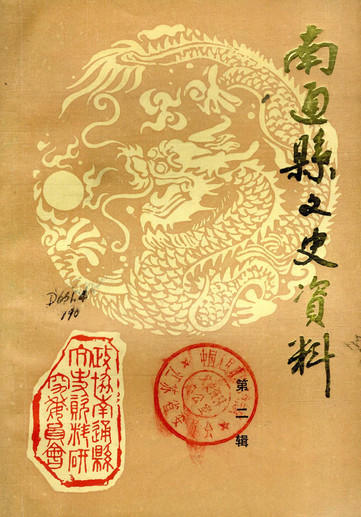 南通縣文史資料
第二辑
D651.4
190
政协南通縣
文史資料研
究委員會